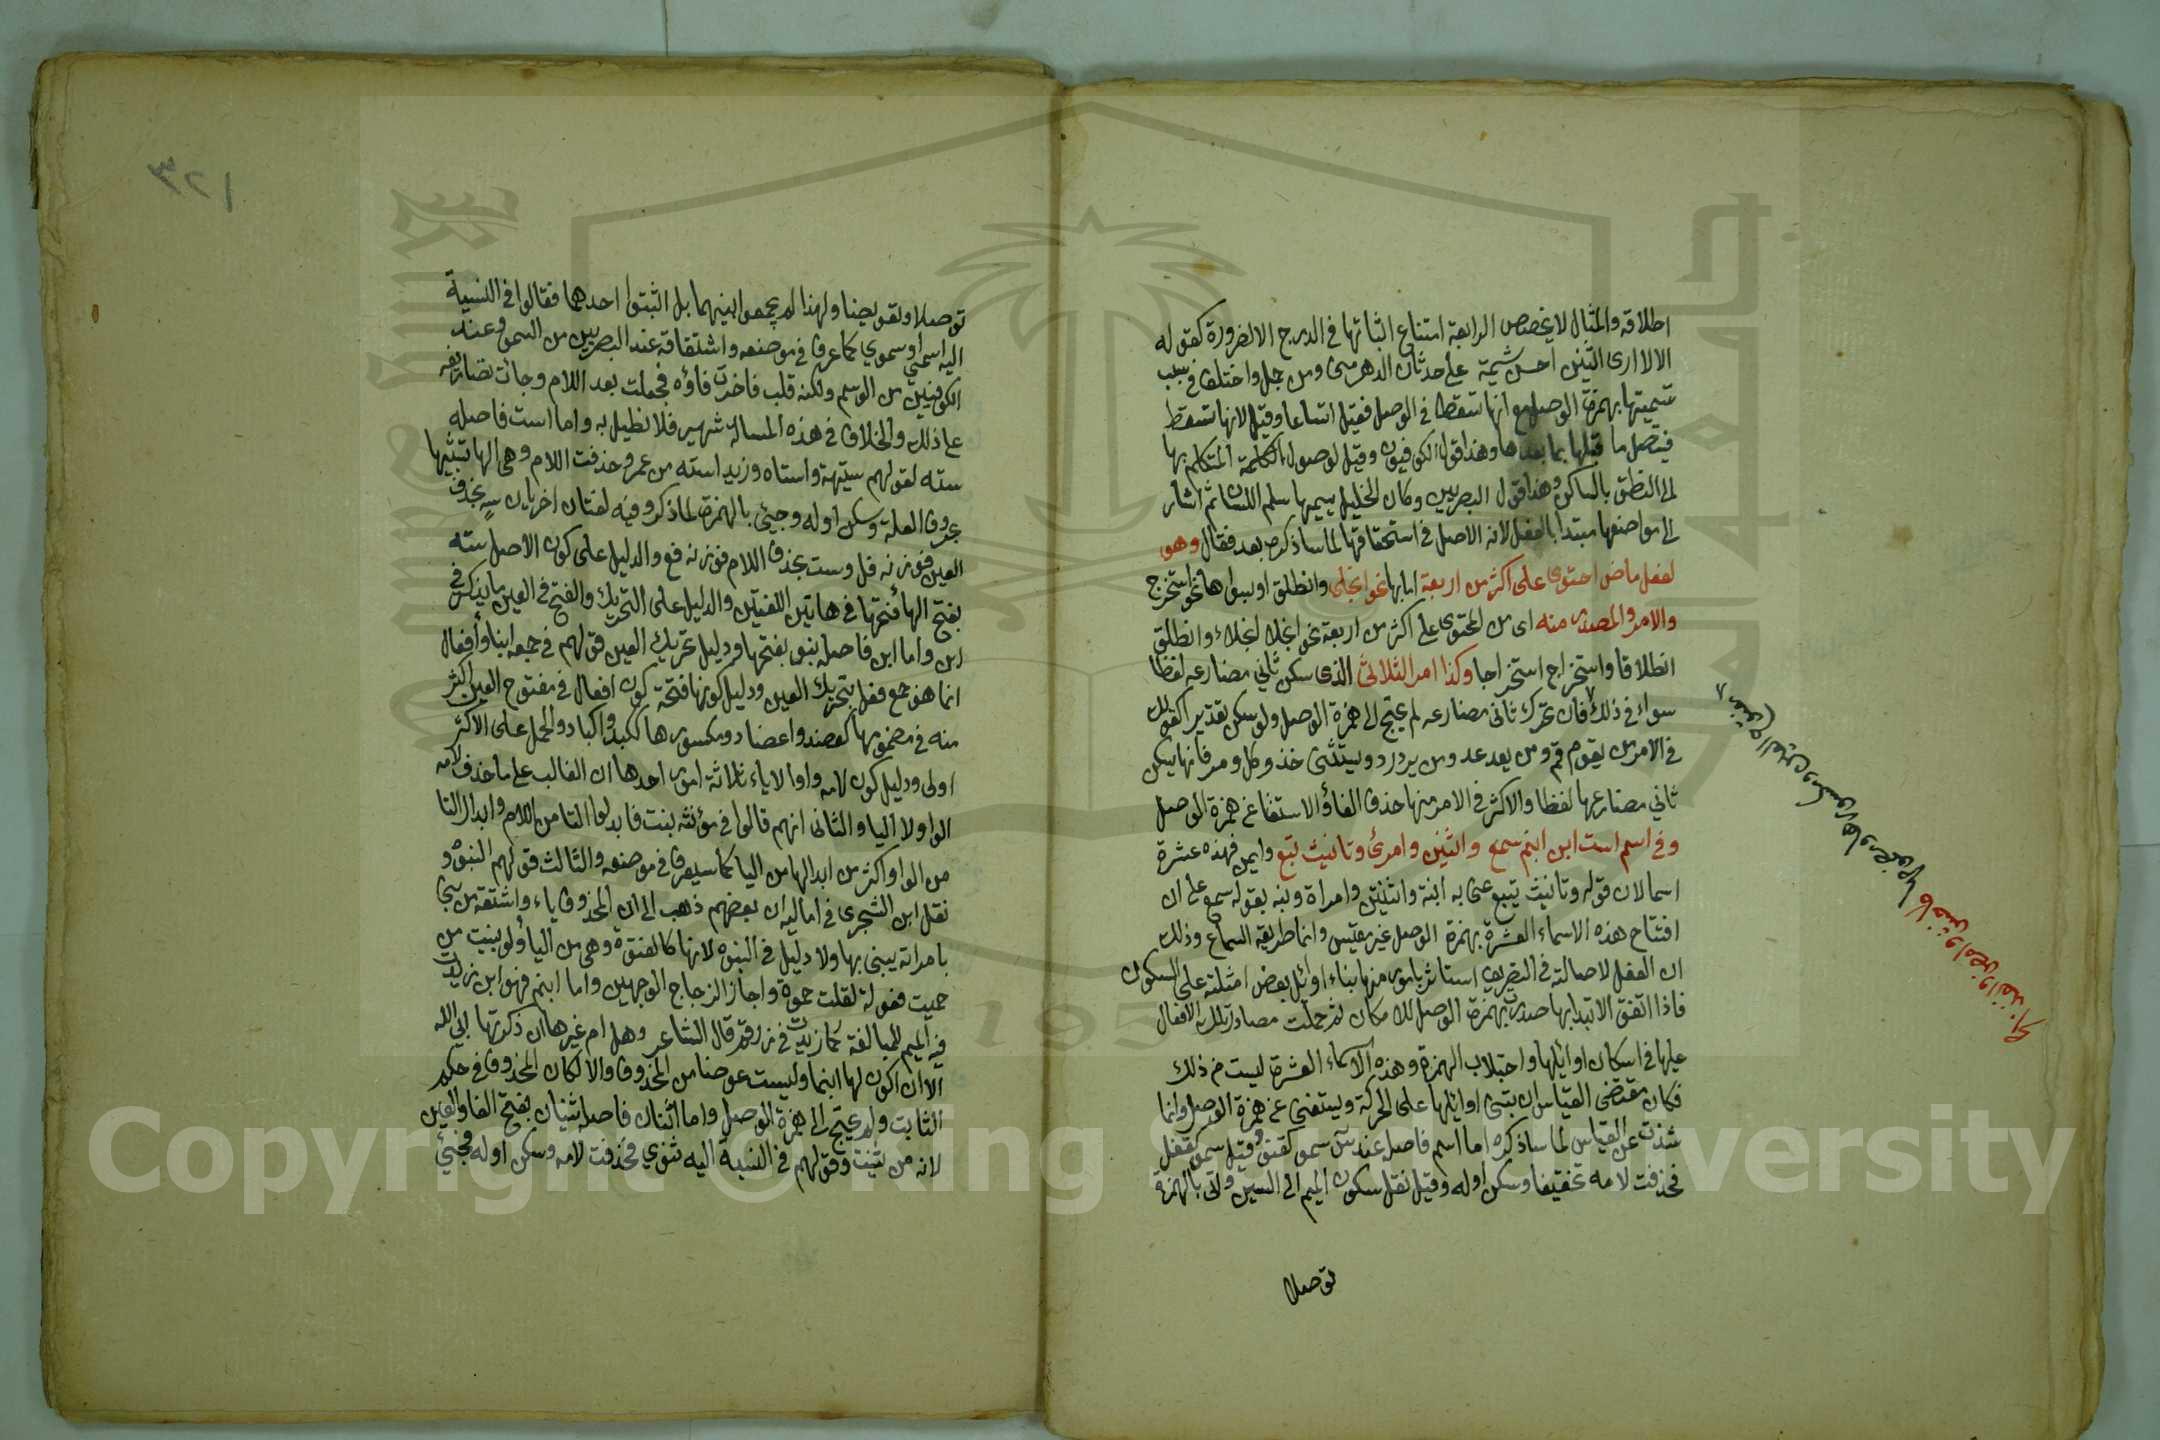 اطلاقه والمثال لا يخصص الرابعة امتناع اثباتها في الدرج الا لضرورة كقوله
الا لا ارى اثنين احسن شيمة على حدثان الدهر منى ومن جمل واختلف في سبب
تسميتها بهمزة الوصل مع انها تسقط في الوصل فقيل اتساعا وقيل لانها تسقط
فيتصل ما قبلها بما بعدها وهذا قول الكوفيون وقيل لوصول الكلمة المتكلم بها
الى النطق بالساكن وهذا قول البصريين وكان الخليل يسميها سلم اللسان ثم اشار
الى مواضعها مبتدا بالفعل لانه الاصل في استحقاقها لما ساذكره بعد فقال وهو
لفعل ماض احتوى على اكثر من اربعة اما بها نحو انجلى وانطلق او بسواها نحو استخرج
والامر والمصدر منه اى من المحتوى على اكثر من اربعة نحو انجلا انجلاء وانطلق
انطلاقا واستخراج استخراجا وكذا امر الثلاثى الذى سكن ثاني مضارعه لفظا
سواء في ذلك فان تحرك ثانى مضارعه لم يحتج الى همزة الوصل ولو سكن تقديرا كقولك
في الامر من يقوم قم ومن يعد عد ومن يرد رد ويستثنى خذ وكل ومر فانها يسكن
ثاني مضارعها لفظا والاكثر في الامر منها حذف الفاء والاستغنا عن همزة الوصل
وفى اسم است ابن ابنم سمع واثنين وامرئ وتانيث تبع وايمن فهذه عشرة
اسما لان قوله وتانيث يتبع عنى به ابنة واثنتين وامراة ونبه بقوله سمع على ان
افتتاح هذه الاسماء العشرة بهمزة الوصل غير مقيس وانما طريقه السماع وذلك
ان الفعل لاصالته في التصريف استاثر بامور منها بناء اوائل بعض امثلته على السكون
فاذا اتفق الابتدا بها صدرت بهمزة الوصل للامكان ثم حملت مصادر تلك الافعال
عليها في اسكان اوائلها واجتلاب الهمزة وهذه الاسماء العشرة ليست من ذلك
فكان مقتضى القياس ان يتبنى اوائلها على الحركة ويستغنى عن همزة الوصل وانما
شذت عن القياس لما ساذكره اما اسم فاصله عند س سمو كقنو وقيل سمو كقفل
فحذفت لامه تخفيفا وسكن اوله وقيل نقل سكون الميم الى السين واتى بالهمزة
توصلا
كالخش وامض وانفذا
١٢٣
توصلا وتعويضا ولهذا لم يجمعوا بينهما بل اثبتوا احدهما فقالوا في النسبة
اليه اسمي او سموي كما عرف في موضعه واشتقاقه عند البصريين من السمو وعند
الكوفيين من الوسم ولكنه قلب فاخرت فاؤه فجعلت بعد اللام وجات تصاريفه
على ذلك والخلاف في هذه المسالة شهير فلا نطيل به واما است فاصله
سته لقولهم ستيهة واستاه وزيد استه من عمرو حذفت اللام وهى الها تشبيها
بحروف العلة وسكن اوله وجيئ بالهمزة لما ذكر وفيه لغتان اخريان سه بحذف
العين فوزنه فل وست بحذف اللام فوزنه فع والدليل على كون الاصل سته
بفتح الها فتحها في هاتين اللغتين والدليل على التحريك والفتح في العين ما يذكر في
ابن واما ابن فاصله بنو بفتحها ودليل تحريك العين قولهم في جمعه ابنا وافعال
انما هو جمع فعل بتحريك العين ودليل كونها فتحة كون افعال في مفتوح العين اكثر
منه في مضمومها كعضد واعضاد ومكسورها ككبد واكباد والحمل على الاكثر
اولى ودليل كون لامه واوا لا ياء ثلاثة امور احدها ان الغالب على ما حذف لامه
الواو لا اليا والثانى انهم قالوا في مؤنثه بنت فابدلوا التا من اللام وابدال التا
من الواو اكثر من ابدالها من اليا كما سيعرف في موضعه والثالث قولهم البنوة و
نقل ابن الشجرى في اماليه ان بعضهم ذهب الى ان المحذوف ياء واشتقه من بنى
بامراته يبنى بها ولا دليل في البنوة لانها كالفتوة وهى من اليا ولو بنيت من
حميت فعولة لقلت حموة واجاز الزجاج الوجهين واما ابنم فهو ابن زيدت
فيه الميم للمبالغة كما زيدت في زرقم قال الشاعر وهل ام غيرها ان ذكرتها ابى الله
الا ان اكون لها ابنما وليست عوضا من المحذوف والا لكان المحذوف في حكم
الثابت ولم يحتج الى همزة الوصل واما اثنان فاصله ثنيان بفتح الفا والعين
لانه من ثنيت وقولهم في النسبة اليه ثنوي فحذفت لامه وسكن اوله فجئئ
Copyright © King Saud University